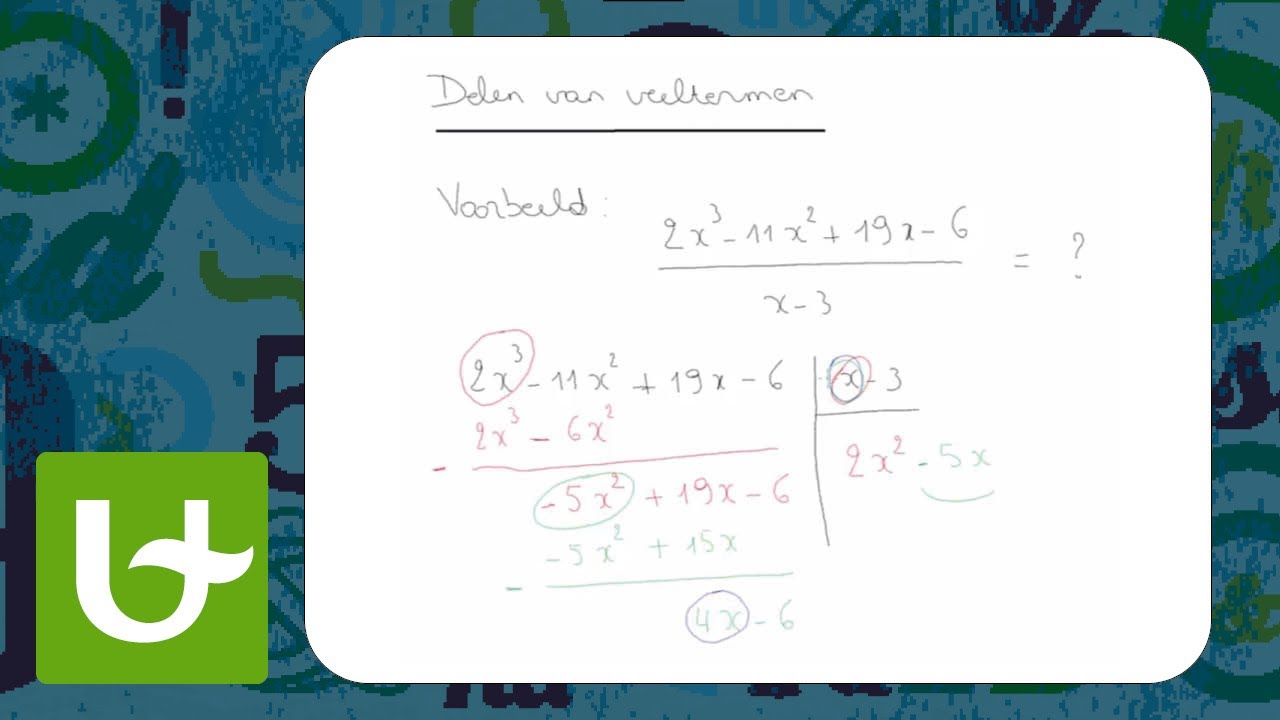 Delen van veeltermen
Voorbeeld:
2x³ - 11x² + 19x - 6
= ?
x - 3
2x³ - 11x² + 19x - 6
x - 3
2x³ - 6x²
2x² - 5x
-
-5x² + 19x - 6
-5x² + 15x
-
4x - 6